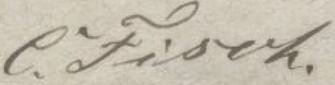 C. Fisch.